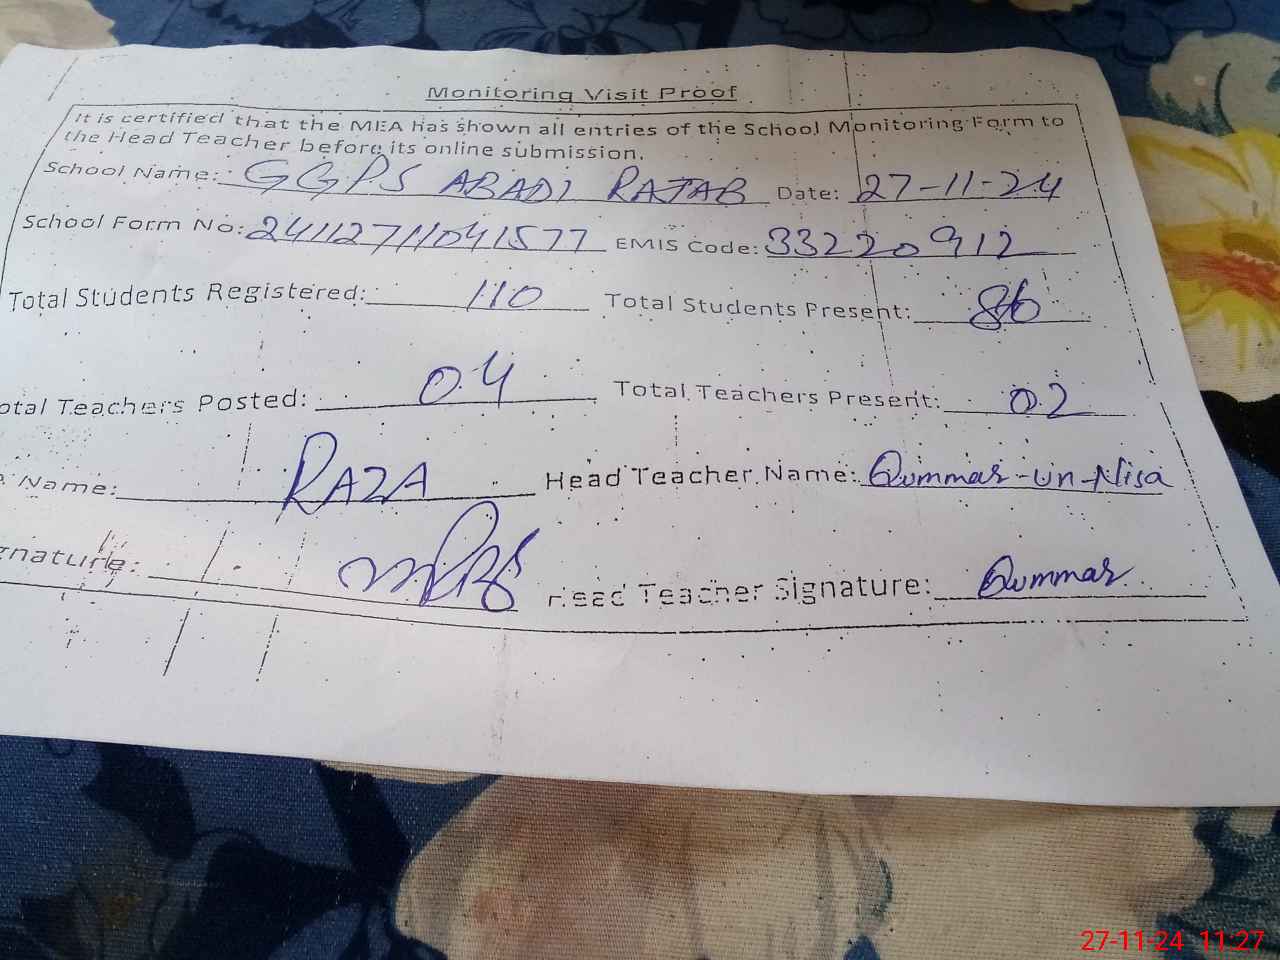 Monitoring Visit Proof
It is certified that the MEA has shown all entries of the School Monitoring Form to
the Head Teacher before its online submission.
School Name: GGPS ABADI RAJAB Date: 27-11-24
School Form No: 24112711041577 EMIS Code: 33220912
Total Students Registered: 110 Total Students Present: 86
otal Teachers Posted: 04 Total Teachers Present: 02
Name: RAZA Head Teacher Name: Qummar-un-Nisa
gnature: Head Teacher Signature: Qummar
27-11-24 11:27